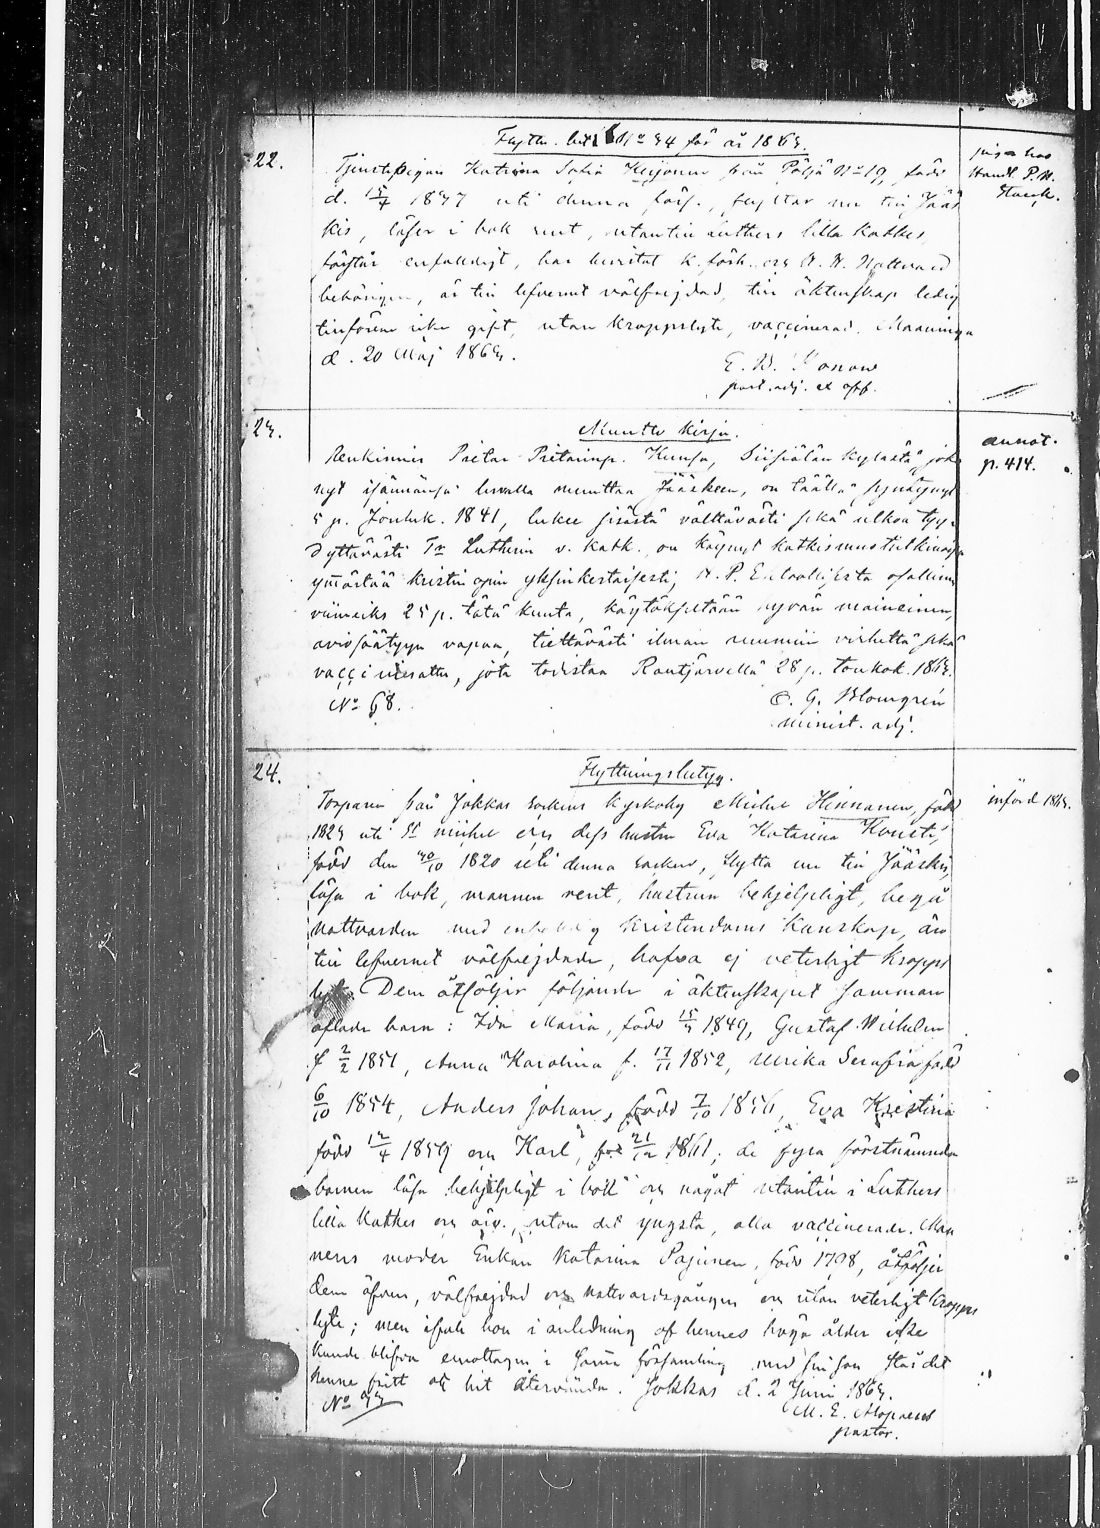 Flyttn. bet. No 94 för år 1863.
22.
Tjenstepigan Katrina Sofia Keijonen från Pöljä No 19, född
piga hos
Handl. P. W.
Starck.
d. 15/4 1847 uti denna förs., flyttar nu till Jääs
kis, läser i bok rent, utantill Luthers lilla Kathes
förstår enfaldigt, har bevistat k. förh. och H. H. Nattvard
behörigen, är till lefvernet välfrejdad, till äktenskap ledig
tillförene icke gift, utan kroppslyte, vaccinerad. Maaninga
d. 20 Maj 1863.
E. B.
past. adj. ex off.
23.
Muutto kirja.
annot.
p. 414.
Renkimies Pietar Pietarinp. Kunsa, kylästä, joka
nyt isännänsä luvalla muuttaa Jääskeen, on täällä syndynyt
5 p. Jouluk. 1841, lukee sisästä välttävästi sekä ulkoa tyy-
dyttävästi Tr Lutherin v. katk., on käynyt katkismustutkinnoissa
ymmärtää kristin opin yksinkertaisesti, H. P. Ehtoollisesta osallinen
viimeiks 25 p. tätä kuuta, käytökseltään hyvän maineinen,
aviosäätyyn vapaa, tiettävästi ilman ruumiin virhettä sekä
vaccineerattu, jota todistaa Rautjärvellä 28 p. toukok. 1863.
No 68.
C. G. Blomgrén
minist. adj.
24.
Flyttningsbetyg.
Torparen från Jokkas sockens kyrkoby Michel Hinnanen, född
införd 1863.
1823 uti St Michel och dess hustru Eva Katarina
född den 1820 uti denna socken, flytta nu till Jääskis,
läsa i bok, mannen rent, hustrun behjelpligt, begå
nattvarden med kristendoms kunskap, äro
till lefvernet välfrejdade, hafva ej veterligt kropps
lyte. Dem åtföljer följande i äktenskapet samman
aflade barn: Ida Maria, född 1849, Gustaf Wilhelm
f 2/2 1851, Anna Karolina f. 17/11 1852, Ulrika Serafia född
6/10 1854, Anders Johan, född 7/10 1856, Eva Kristina
född 12/4 1859 och Karl, född 21/12 1861; de fyra förstnämnda
barnen läsa behjelpligt i bok och något utantill i Luthers
lilla Kathes och äro, utom det yngsta, alla vaccinerade. Man
nens moder Enkan Katarina Pajunen, född 1798, åtföljer
dem äfven, välfrejdad och nattvardsgången och utan veterligt kropps
lyte; men ifall hon i anledning af hennes höga ålder icke
kunde blifva emottagen i samma församling med sin son står det
henne fritt att hit återvända. Jokkas d. 2 Juni 1863.
No 93
M. E. Alopaeus
pastor.